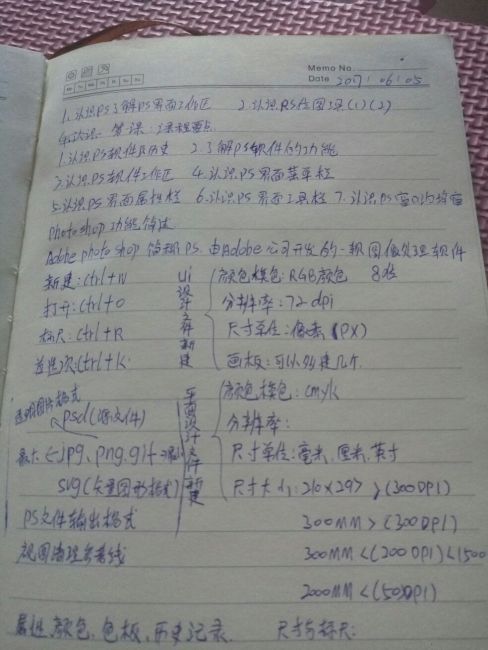 Memo No.
Date 2017.06.05
1.认识PS了解PS界面工作区 2.认识PS绘图工具(1)(2)
第一课:课程要点
1.认识PS软件及历史 2.了解PS软件的功能
3.认识PS软件工作区 4.认识PS界面菜单栏
5.认识PS界面属性栏 6.认识PS界面工具栏 7.认识PS窗口
photoshop功能简述
Adobe photoshop 简称PS 由Adobe公司开发的一款图像处理软件
新建:ctrl+N
打开:ctrl+O
标尺:ctrl+R
首选项:ctrl+K
ui设计文件新建
颜色模色:RGB颜色 8位
分辨率:72dpi
尺寸单位:像素(PX)
画板:可以创建几个
透明图片格式
psd(源文件)
最大<jpg、png、gif
svg(矢量图形格式)
平面设计文件新建
颜色模色:cmyk
分辨率:
尺寸单位:毫米、厘米、英寸
尺寸大小:210X297 >(300DPI)
PS文件输出格式
300MM>(300DPI)
视图清理参考线
300MM<(200DPI)<1500
2000MM<(50DPI)
属性、颜色、色板、历史记录. 尺寸与标尺: